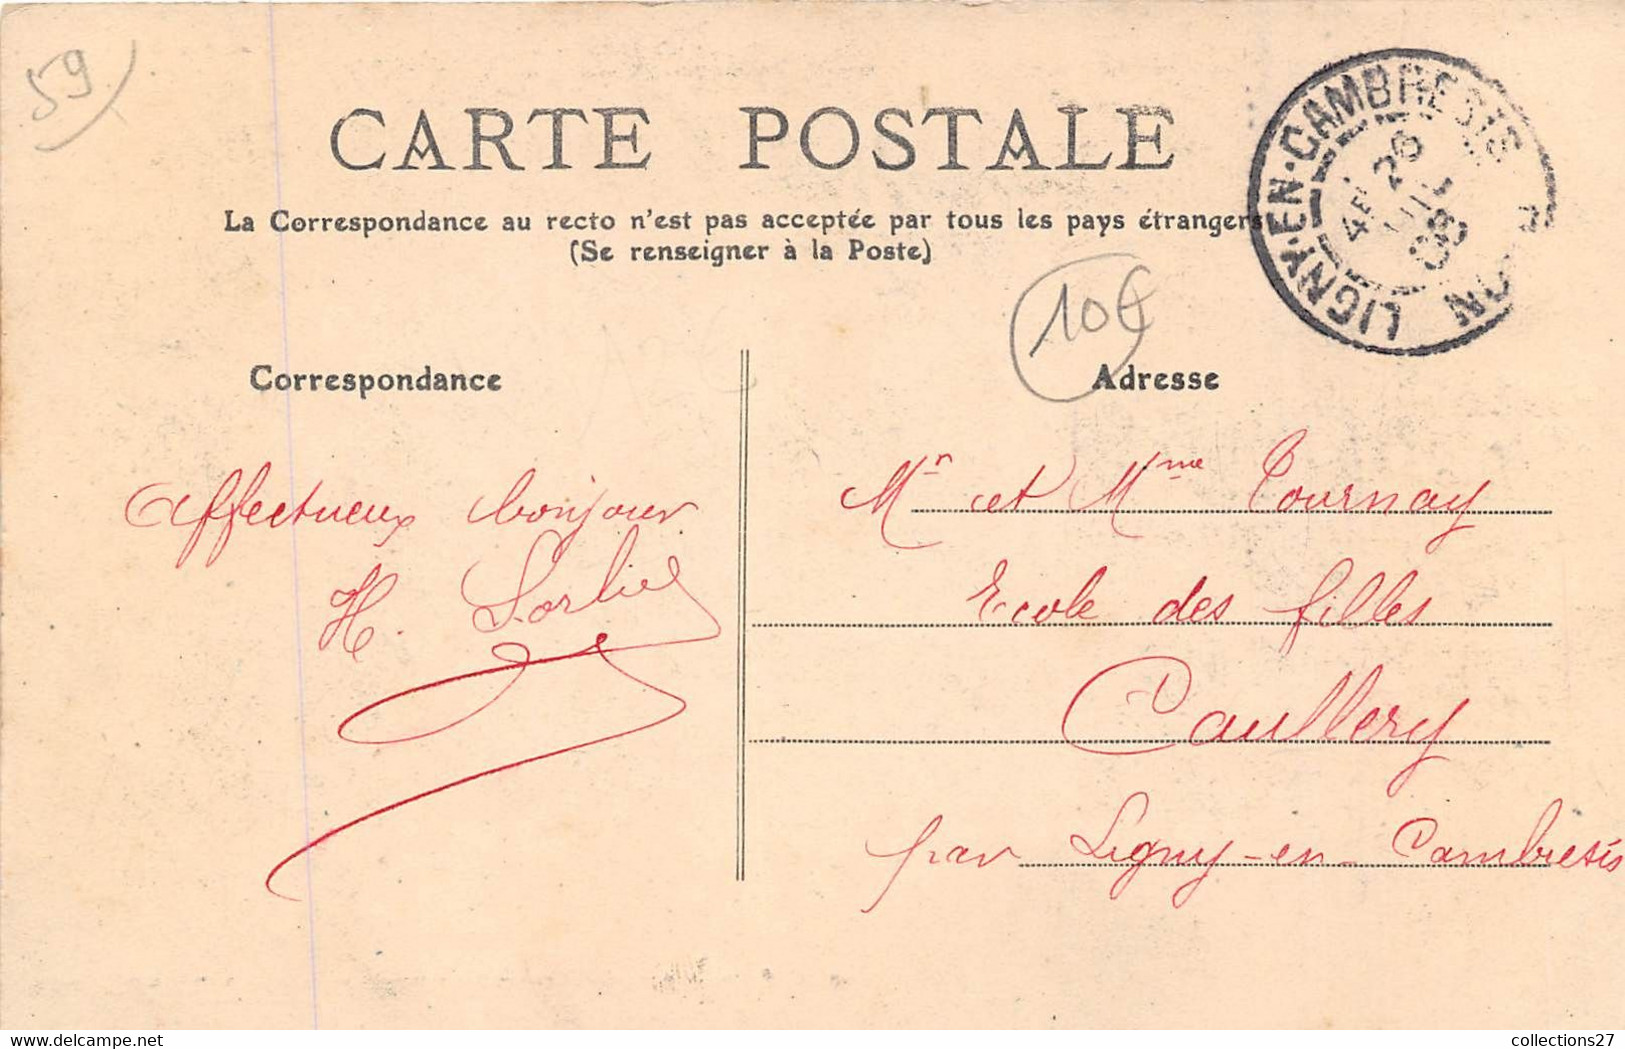 59
CARTE POSTALE
La Correspondance au recto n'est pas acceptée par tous les pays étrangers
(Se renseigner à la Poste)
LIGNY-EN-CAMBRESIS
4E
26
08
10€
Correspondance
Adresse
Affectueux bonjour
H.
Mr et Mme Tournay
Ecole des filles
Caullery
par Ligny-en-Cambresis
collections27